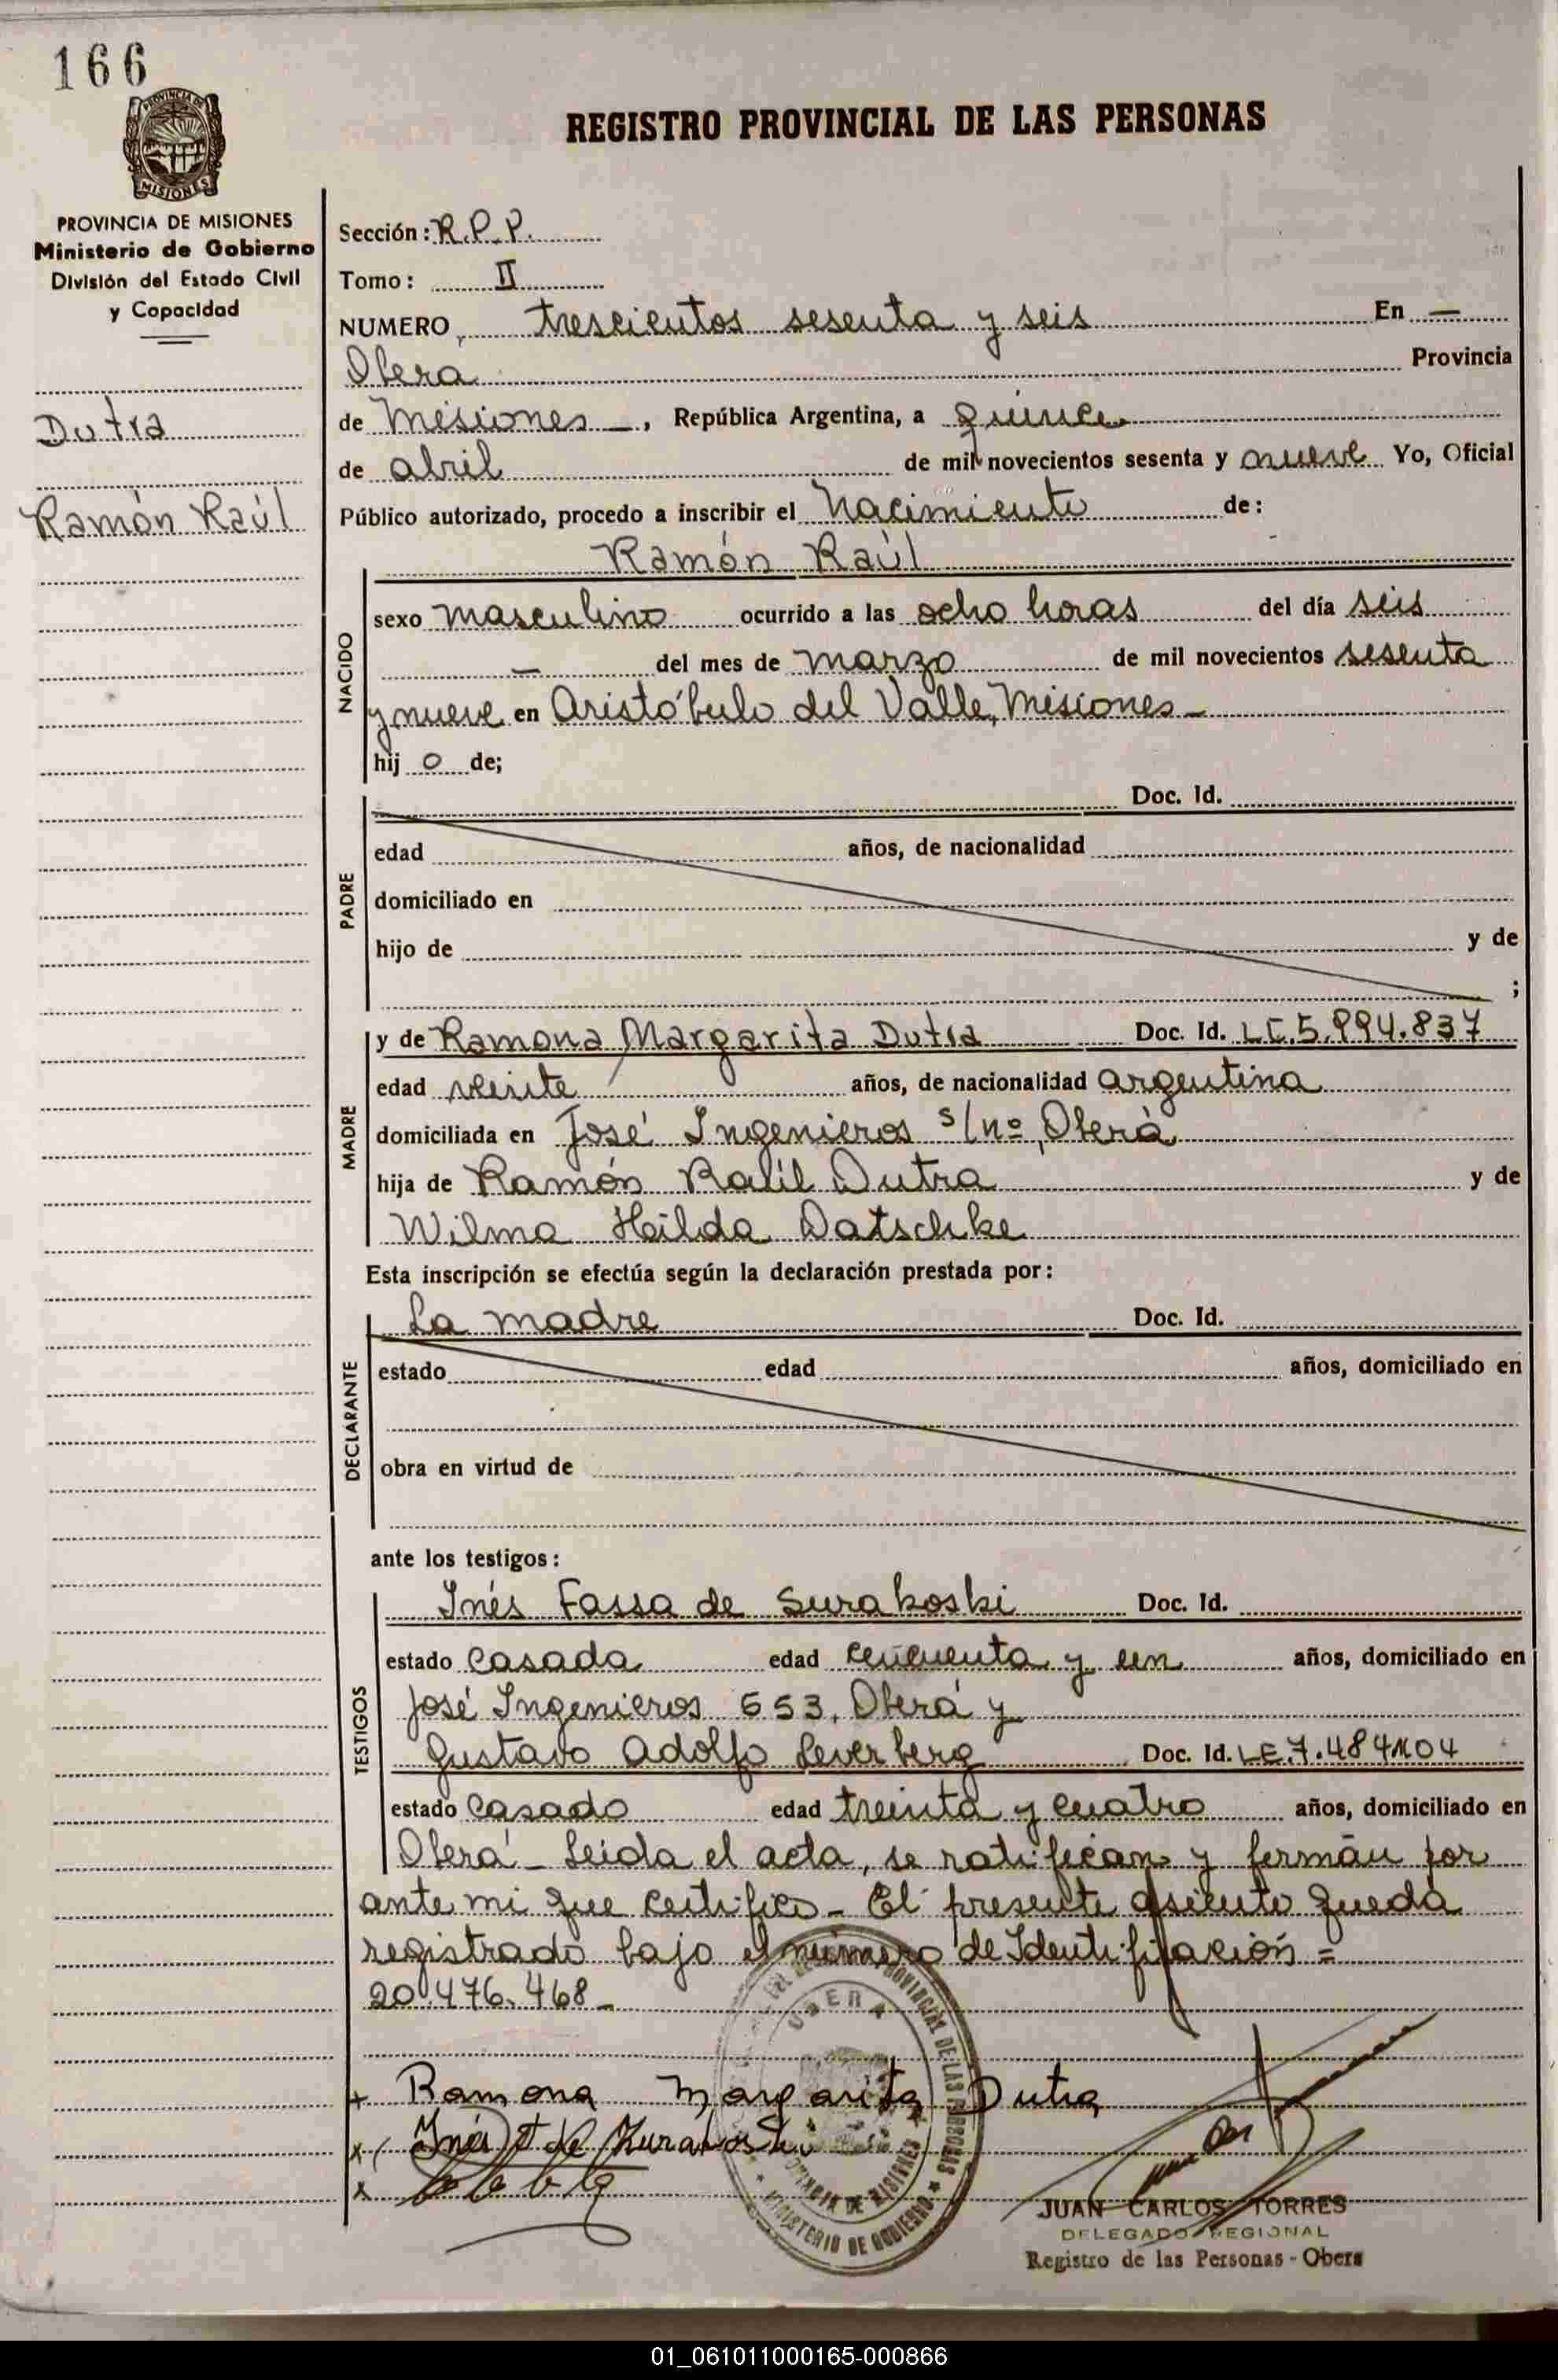 166
REGISTRO PROVINCIAL DE LAS PERSONAS
MISIONES
PROVINCIA DE MISIONES
Ministerio de Gobierno
División del Estado Civil
y Capacidad
Dutra
Ramón Raúl
Sección: R.P.P.
Tomo: II
NUMERO, trescientos sesenta y seis En —
Obera Provincia
de Misiones —, República Argentina, a quince
de abril de mil novecientos sesenta y nueve Yo, Oficial
Público autorizado, procedo a inscribir el Nacimiento de:
Ramón Raúl
NACIDO
sexo masculino ocurrido a las ocho horas del día seis
— del mes de marzo de mil novecientos sesenta
y nueve en Aristóbulo del Valle, Misiones —
hij o de;
PADRE
Doc. Id.
edad años, de nacionalidad
domiciliado en
hijo de y de
;
MADRE
y de Ramona Margarita Dutra Doc. Id. LC.5.994.837
edad veinte años, de nacionalidad argentina
domiciliada en José Ingenieros s/nº, Oberá
hija de Ramón Raúl Dutra y de
Wilma Hilda Datschke
Esta inscripción se efectúa según la declaración prestada por:
DECLARANTE
La madre Doc. Id.
estado edad años, domiciliado en
obra en virtud de
ante los testigos:
TESTIGOS
Inés Fassa de Surakoski Doc. Id.
estado casada edad cincuenta y un años, domiciliado en
José Ingenieros 653, Oberá y
Gustavo Adolfo Leverberg Doc. Id. LE.7.484.104
estado casado edad treinta y cuatro años, domiciliado en
Oberá – Leida el acta, se ratifican y firman por
ante mi que certifico – El presente asiento queda
registrado bajo el número de Identificación =
20.476.468 –
OBERA
PROVINCIAL DE LAS PERSONAS
PROVINCIA DE MISIONES
MINISTERIO DE GOBIERNO
+ Ramona Margarita Dutra
x Inés F de Zurakoski
x
JUAN CARLOS TORRES
DELEGADO REGIONAL
Registro de las Personas - Obera
01_061011000165-000866